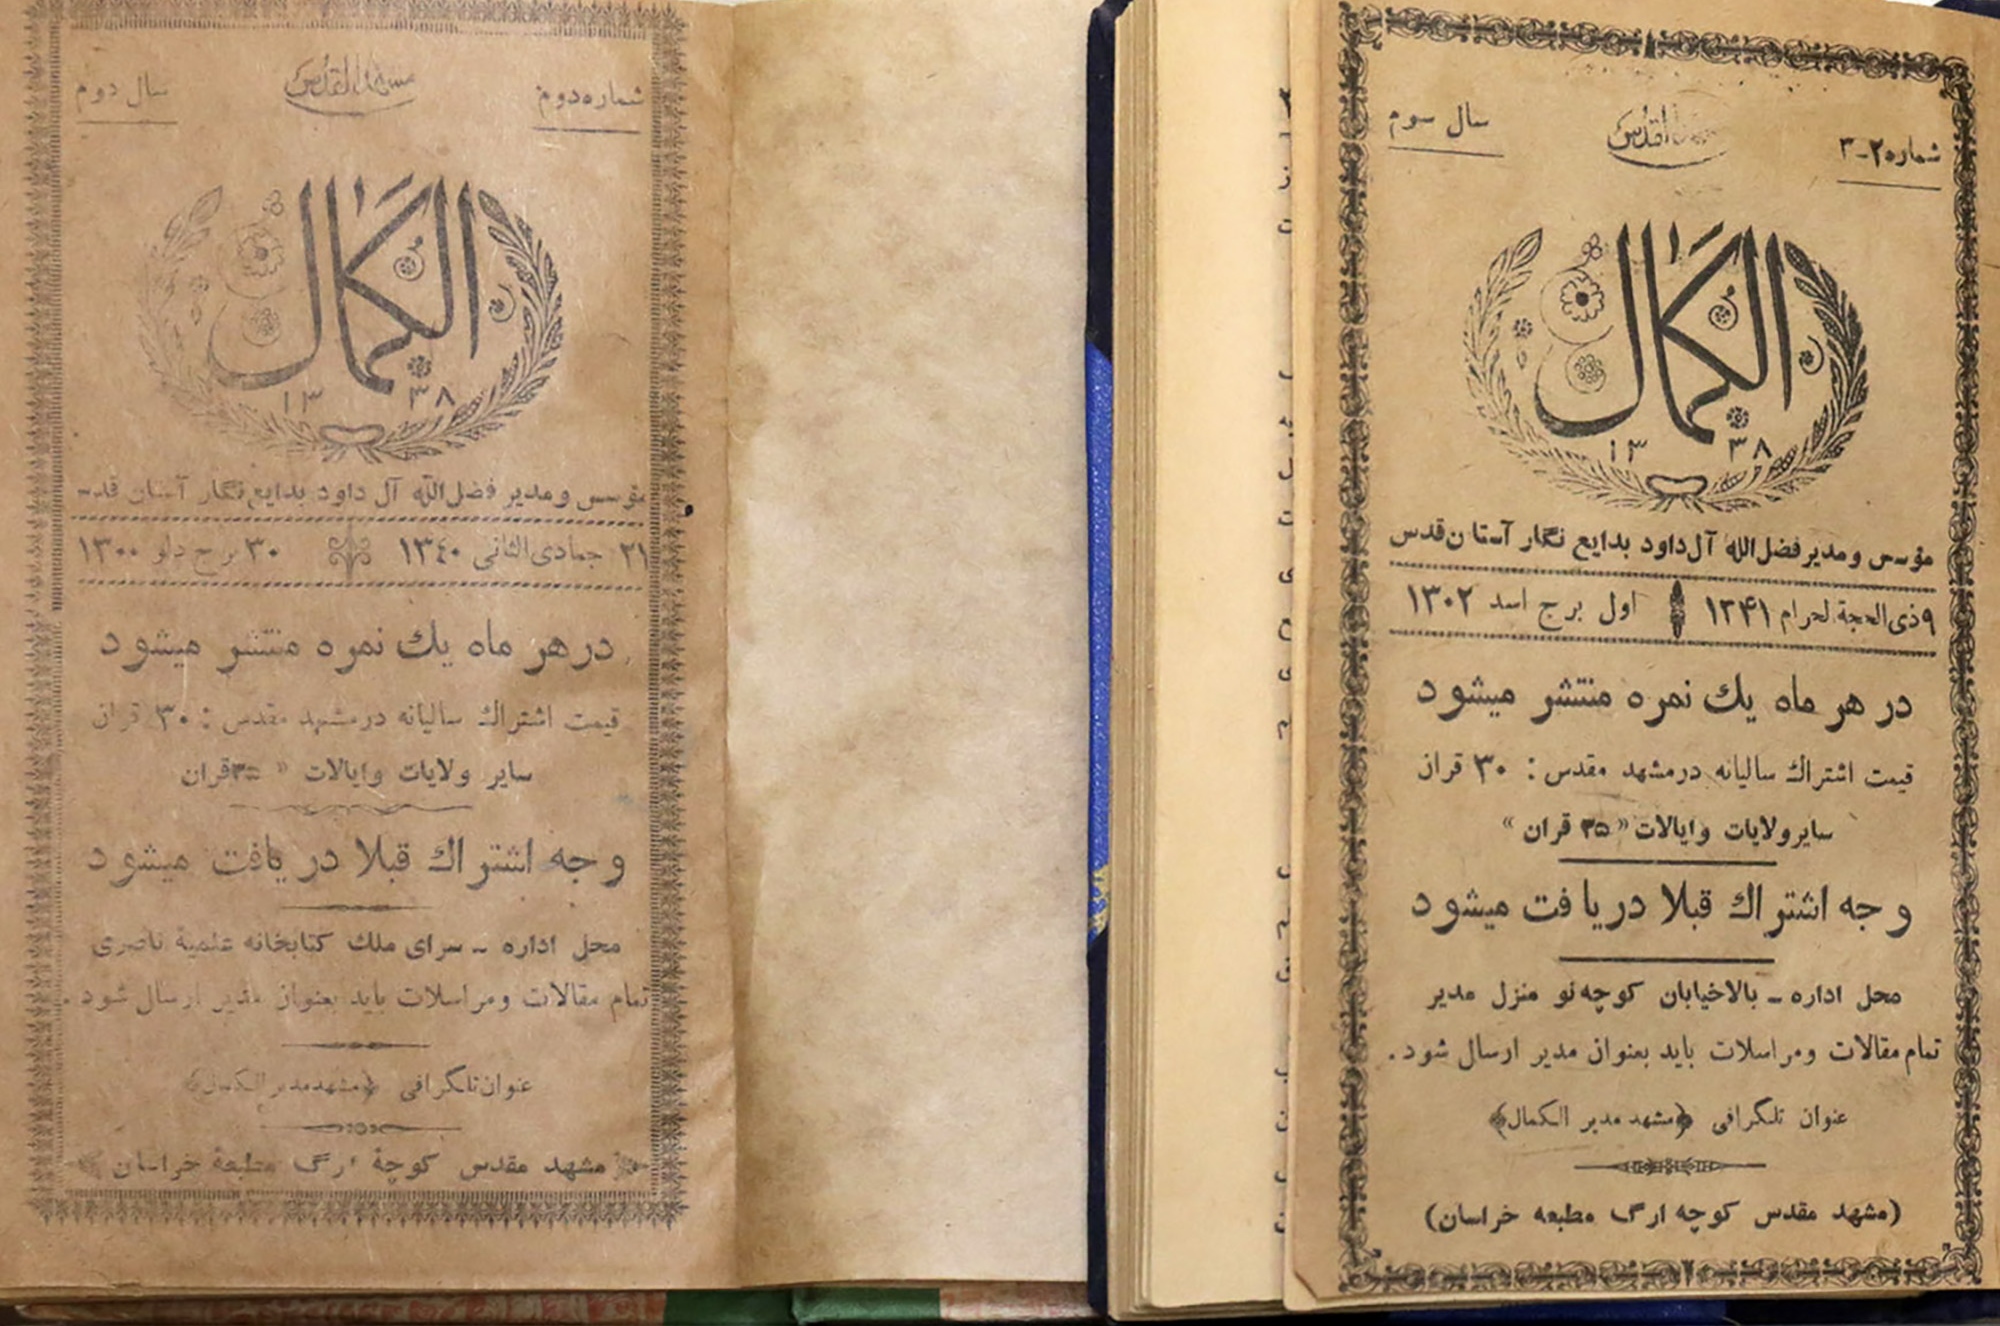 شماره دوم
مشهد القدس
سال دوم
الکمال
۱۳۳۸
مؤسس و مدیر فضل‌الله آل داود بدایع نگار آستان قدس
۲۱ جمادی‌الثانی ۱۳٤۰ ۳۰ برج دلو ۱۳۰۰
در هر ماه یك نمره منتشر میشود
قیمت اشتراك سالیانه در مشهد مقدس : ۳۰ قران
سایر ولایات وایالات « ۳۵ قران
وجه اشتراك قبلا دریافت میشود
محل اداره ـ سرای ملك کتابخانه علمیهٔ ناصری
تمام مقالات ومراسلات باید بعنوان مدیر ارسال شود .
عنوان تلگرافی ﴿مشهد مدیر الکمال﴾
مشهد مقدس کوچهٔ ارگ مطبعهٔ خراسان
شماره ۲ـ۳
مشهد القدس
سال سوم
الکمال
۱۳۳۸
مؤسس و مدیر فضل‌الله آل‌داود بدایع نگار آستان قدس
۹ ذی‌الحجة لحرام ۱۳۴۱ اول برج اسد ۱۳۰۲
در هر ماه یك نمره منتشر میشود
قیمت اشتراك سالیانه در مشهد مقدس : ۳۰ قران
سایر ولایات وایالات « ۳۵ قران »
وجه اشتراك قبلا دریافت میشود
محل اداره ـ بالاخیابان کوچه نو منزل مدیر
تمام مقالات ومراسلات باید بعنوان مدیر ارسال شود .
عنوان تلگرافی ﴿مشهد مدیر الکمال﴾
(مشهد مقدس کوچه ارگ مطبعه خراسان)